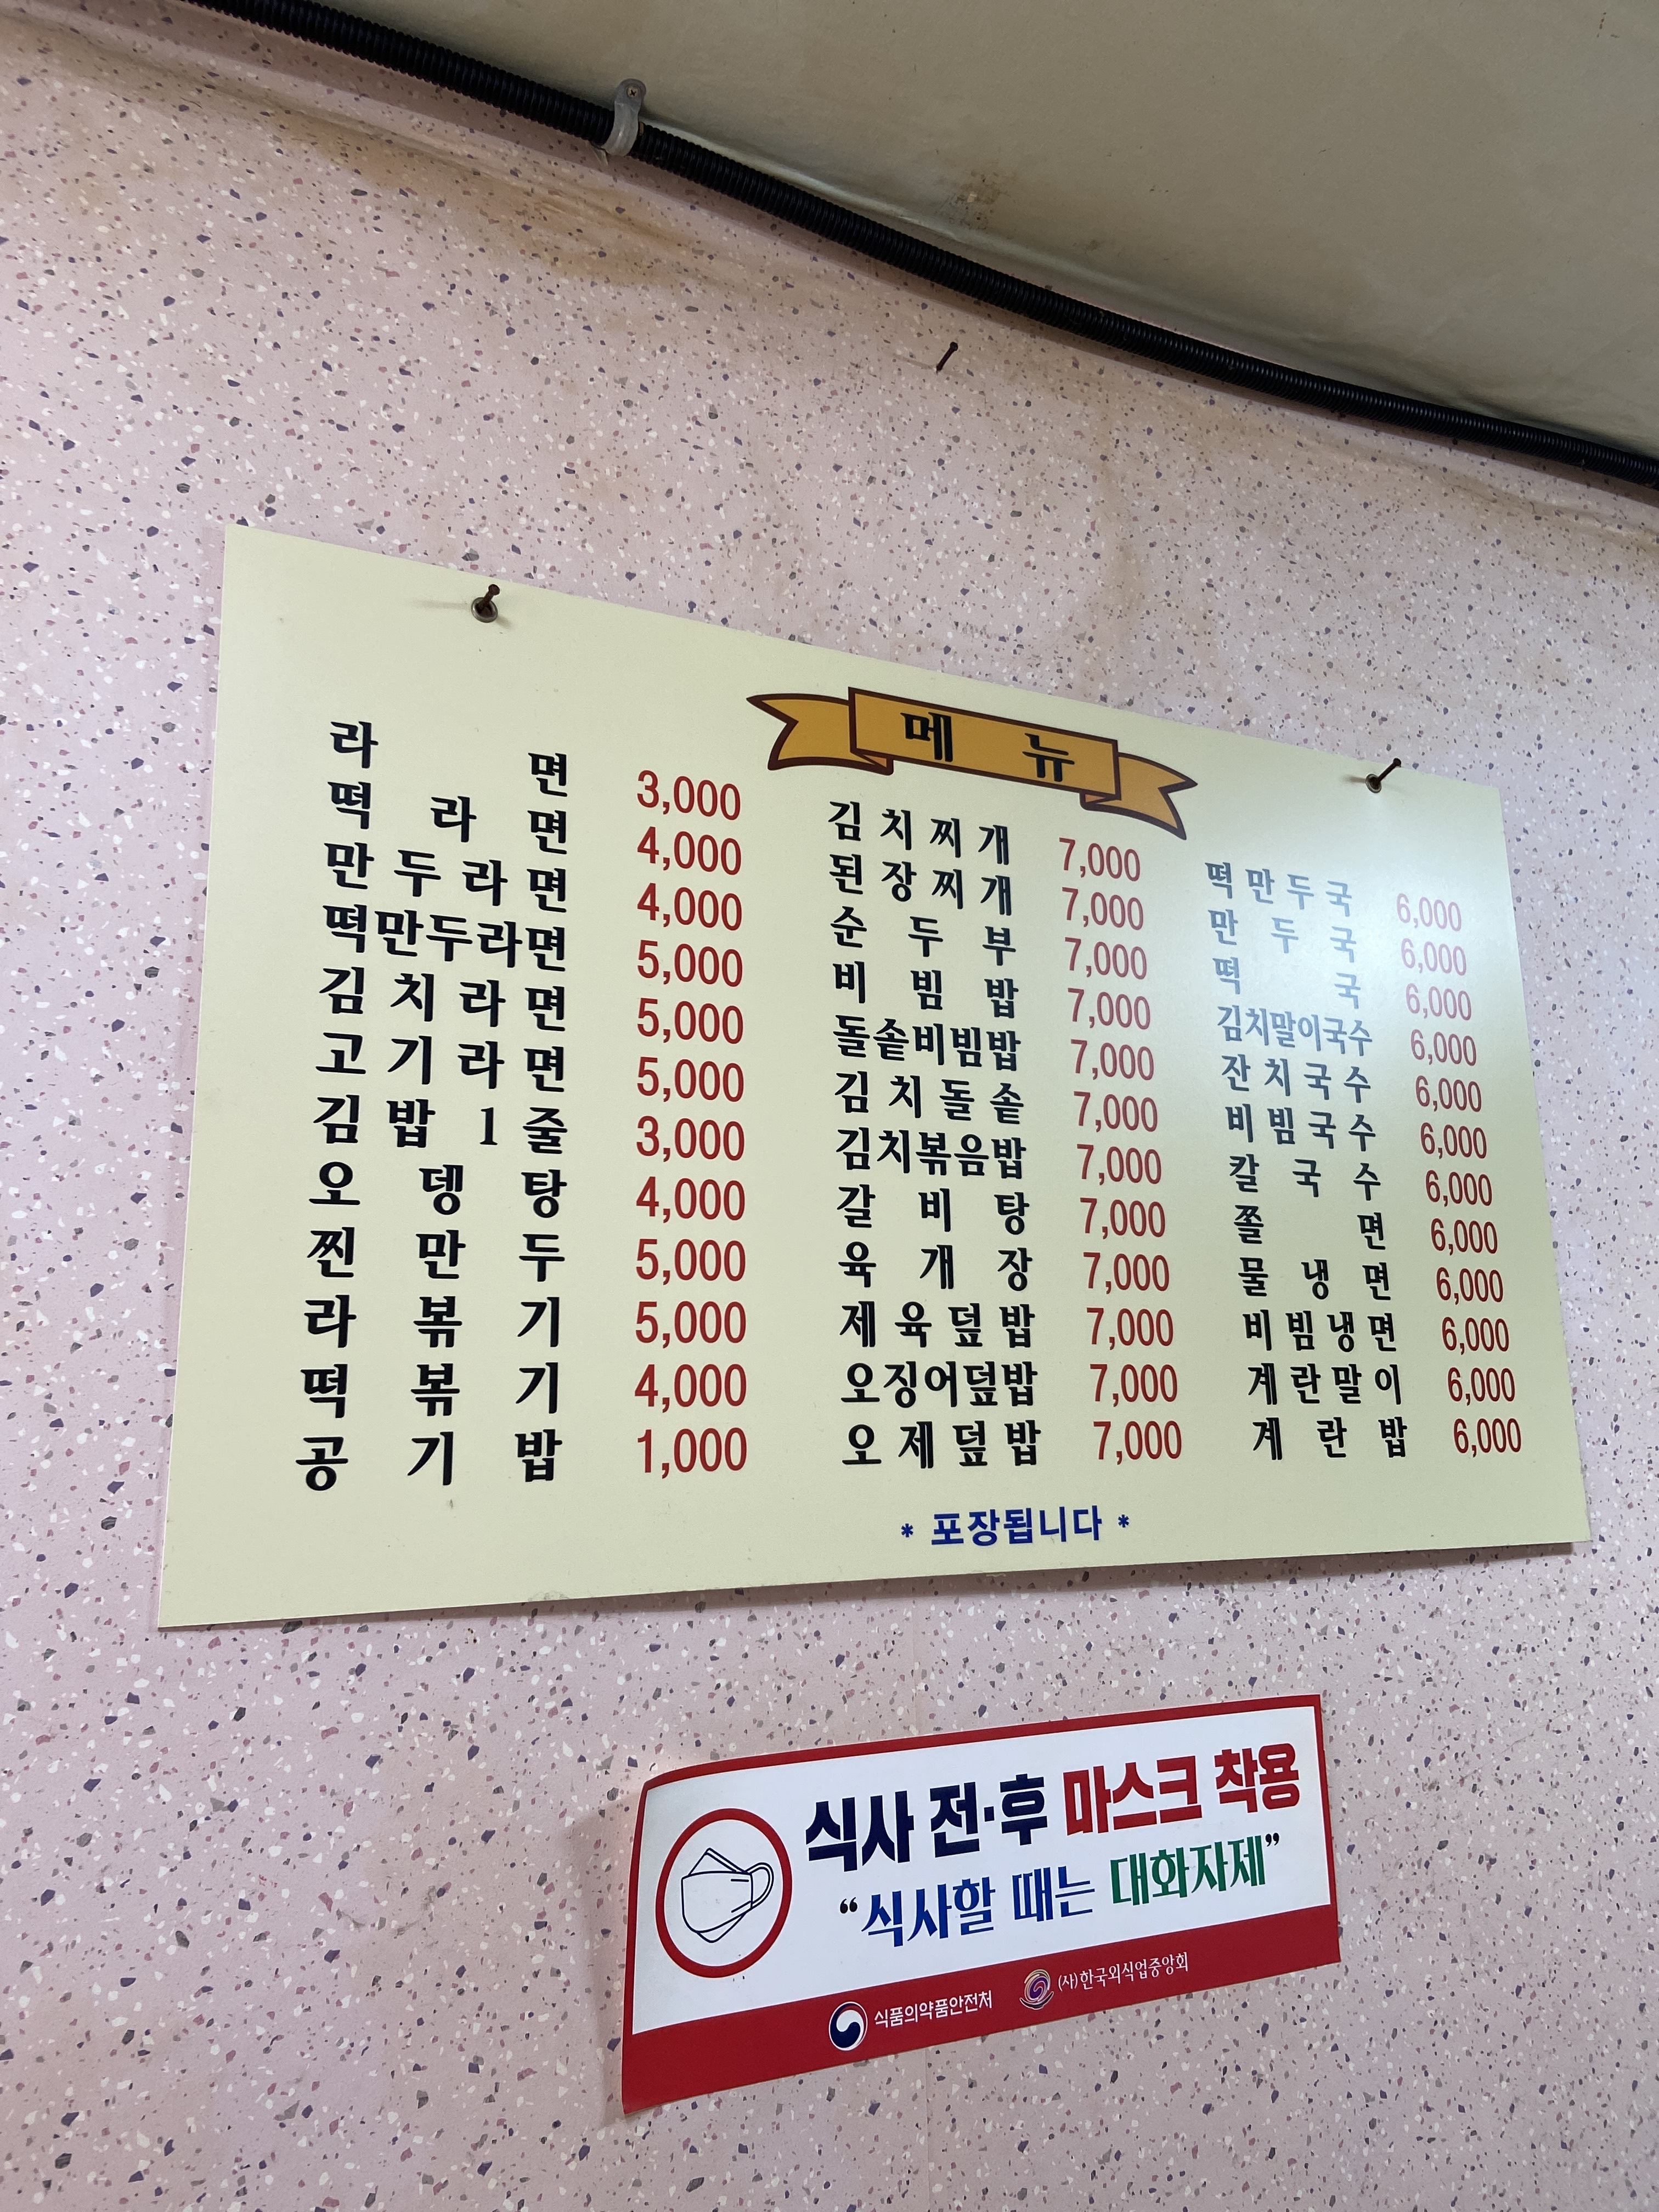 메뉴
라면 3,000
떡라면 4,000
만두라면 4,000
떡만두라면 5,000
김치라면 5,000
고기라면 5,000
김밥 1줄 3,000
오뎅탕 4,000
찐만두 5,000
라볶기 5,000
떡볶기 4,000
공기밥 1,000
김치찌개 7,000
된장찌개 7,000
순두부 7,000
비빔밥 7,000
돌솥비빔밥 7,000
김치돌솥 7,000
김치볶음밥 7,000
갈비탕 7,000
육개장 7,000
제육덮밥 7,000
오징어덮밥 7,000
오제덮밥 7,000
떡만두국 6,000
만두국 6,000
떡국 6,000
김치말이국수 6,000
잔치국수 6,000
비빔국수 6,000
칼국수 6,000
쫄면 6,000
물냉면 6,000
비빔냉면 6,000
계란말이 6,000
계란밥 6,000
* 포장됩니다 *
식사 전·후 마스크 착용
“식사할 때는 대화자제”
식품의약품안전처 (사)한국외식업중앙회